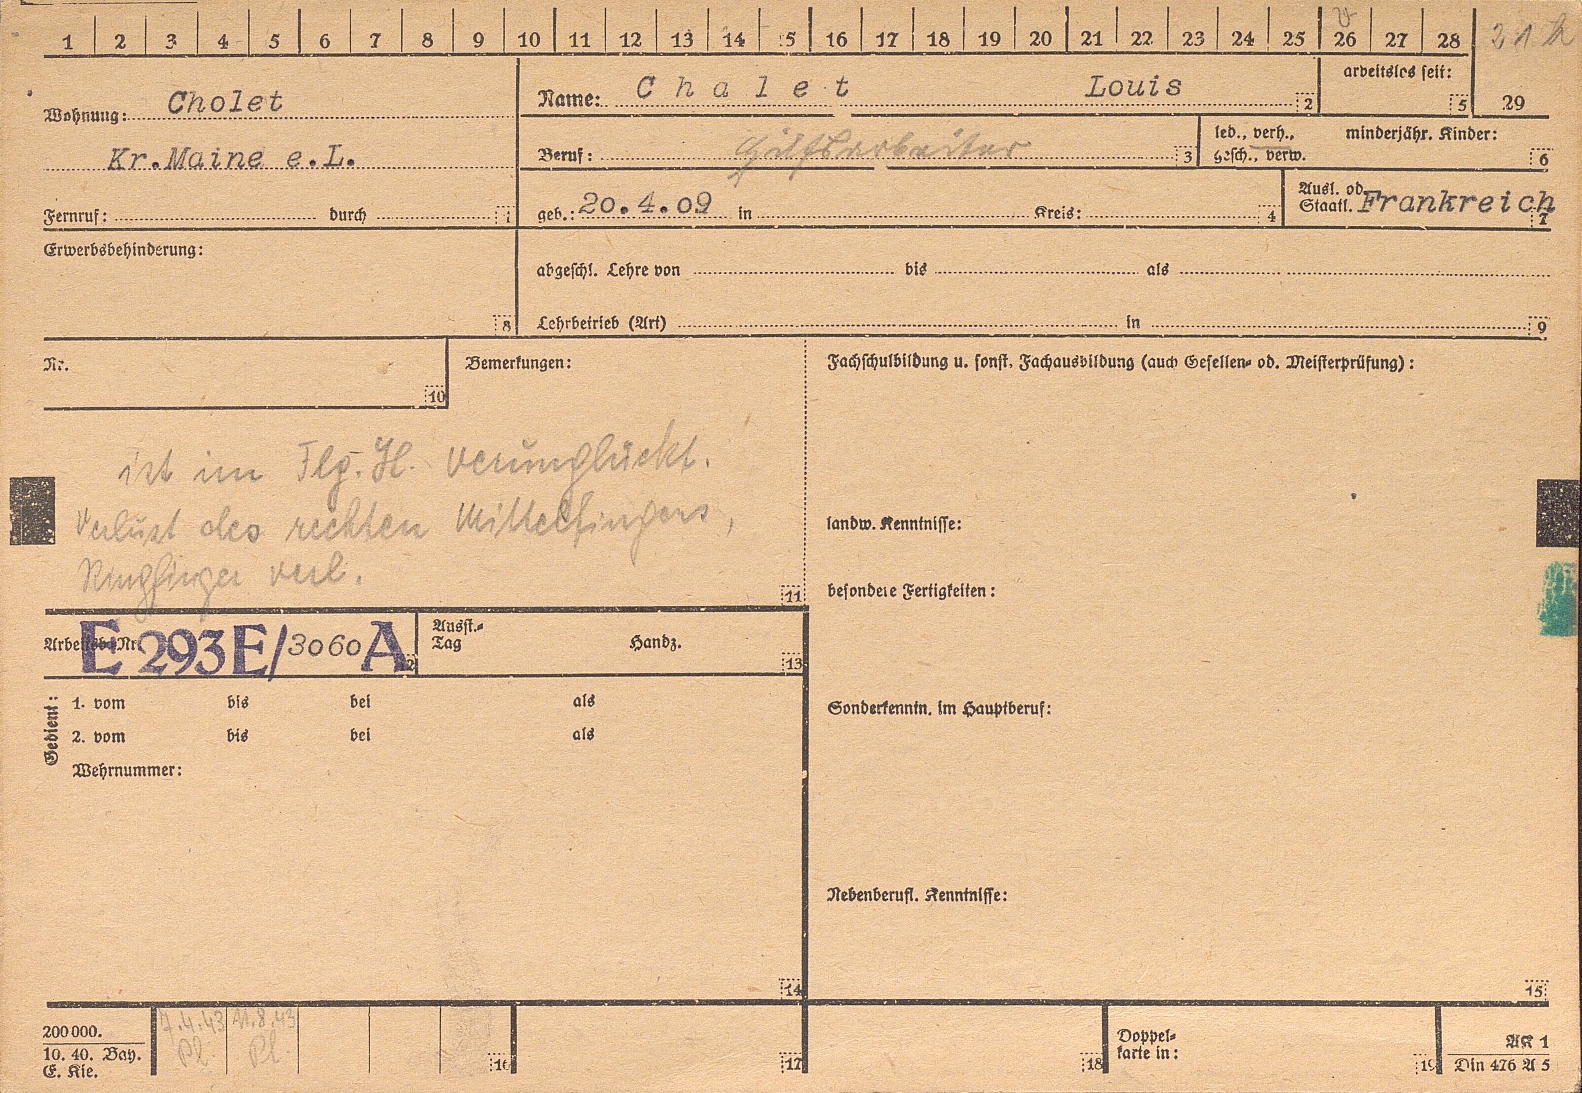 1 2 3 4 5 6 7 8 9 10 11 12 13 14 15 16 17 18 19 20 21 22 23 24 25 26 27 28
Wohnung: Cholet
Kr.Maine e.L.
Fernruf: durch 1
Name: Chalet Louis 2
arbeitslos seit: 5
29
Beruf: Hilfsarbeiter 3
led., verh., gesch., verw.
minderjähr. Kinder: 6
geb.: 20.4.09 in Kreis: 4
Ausl. od. Staatl. Frankreich 7
Erwerbsbehinderung:
8
abgeschl. Lehre von bis als
Lehrbetrieb (Art) in 9
Nr. 10
Bemerkungen:
ist im Flg. H. verunglückt.
Verlust des rechten Mittelfingers,
Ringfinger verl.
11
Fachschulbildung u. sonst. Fachausbildung (auch Gesellen- od. Meisterprüfung):
landw. Kenntnisse:
besondere Fertigkeiten:
Sonderkenntn. im Hauptberuf:
Nebenberufl. Kenntnisse:
15
Arbeitsb.Nr. E 293 E/3060 A 12
Ausst.-Tag Handz. 13
Gedient:
1. vom bis bei als
2. vom bis bei als
Wehrnummer:
14
200000.
10. 40. Bay.
E. Kie.
7.4.43 11.8.43
Pl. Pl.
16
17
18
Doppel-
karte in: 19
AK 1
Din 476 A 5